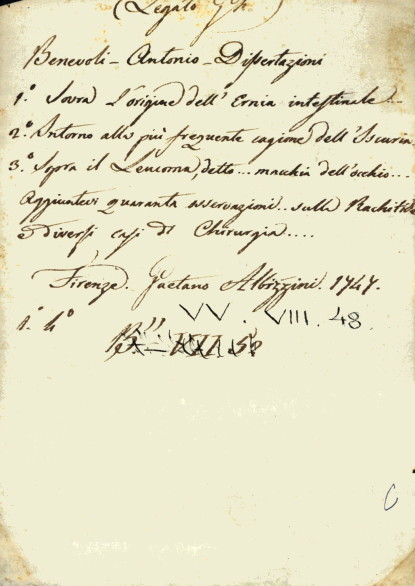 (Legato
Benevoli - Antonio - Dissertazioni
1.º Sovra l'origine dell'Ernia intestinale...
2.º Intorno alla più frequente cagione dell'Iscuria.
3.º Sopra il Leucoma, detto... macchia dell'occhio...
Aggiuntevi quaranta osservazioni... sulla Rachitide
e diversi casi di Chirurgia....
Firenze. Gaetano Albizzini. 1747.
1. 4º
VV. VIII. 48.
C